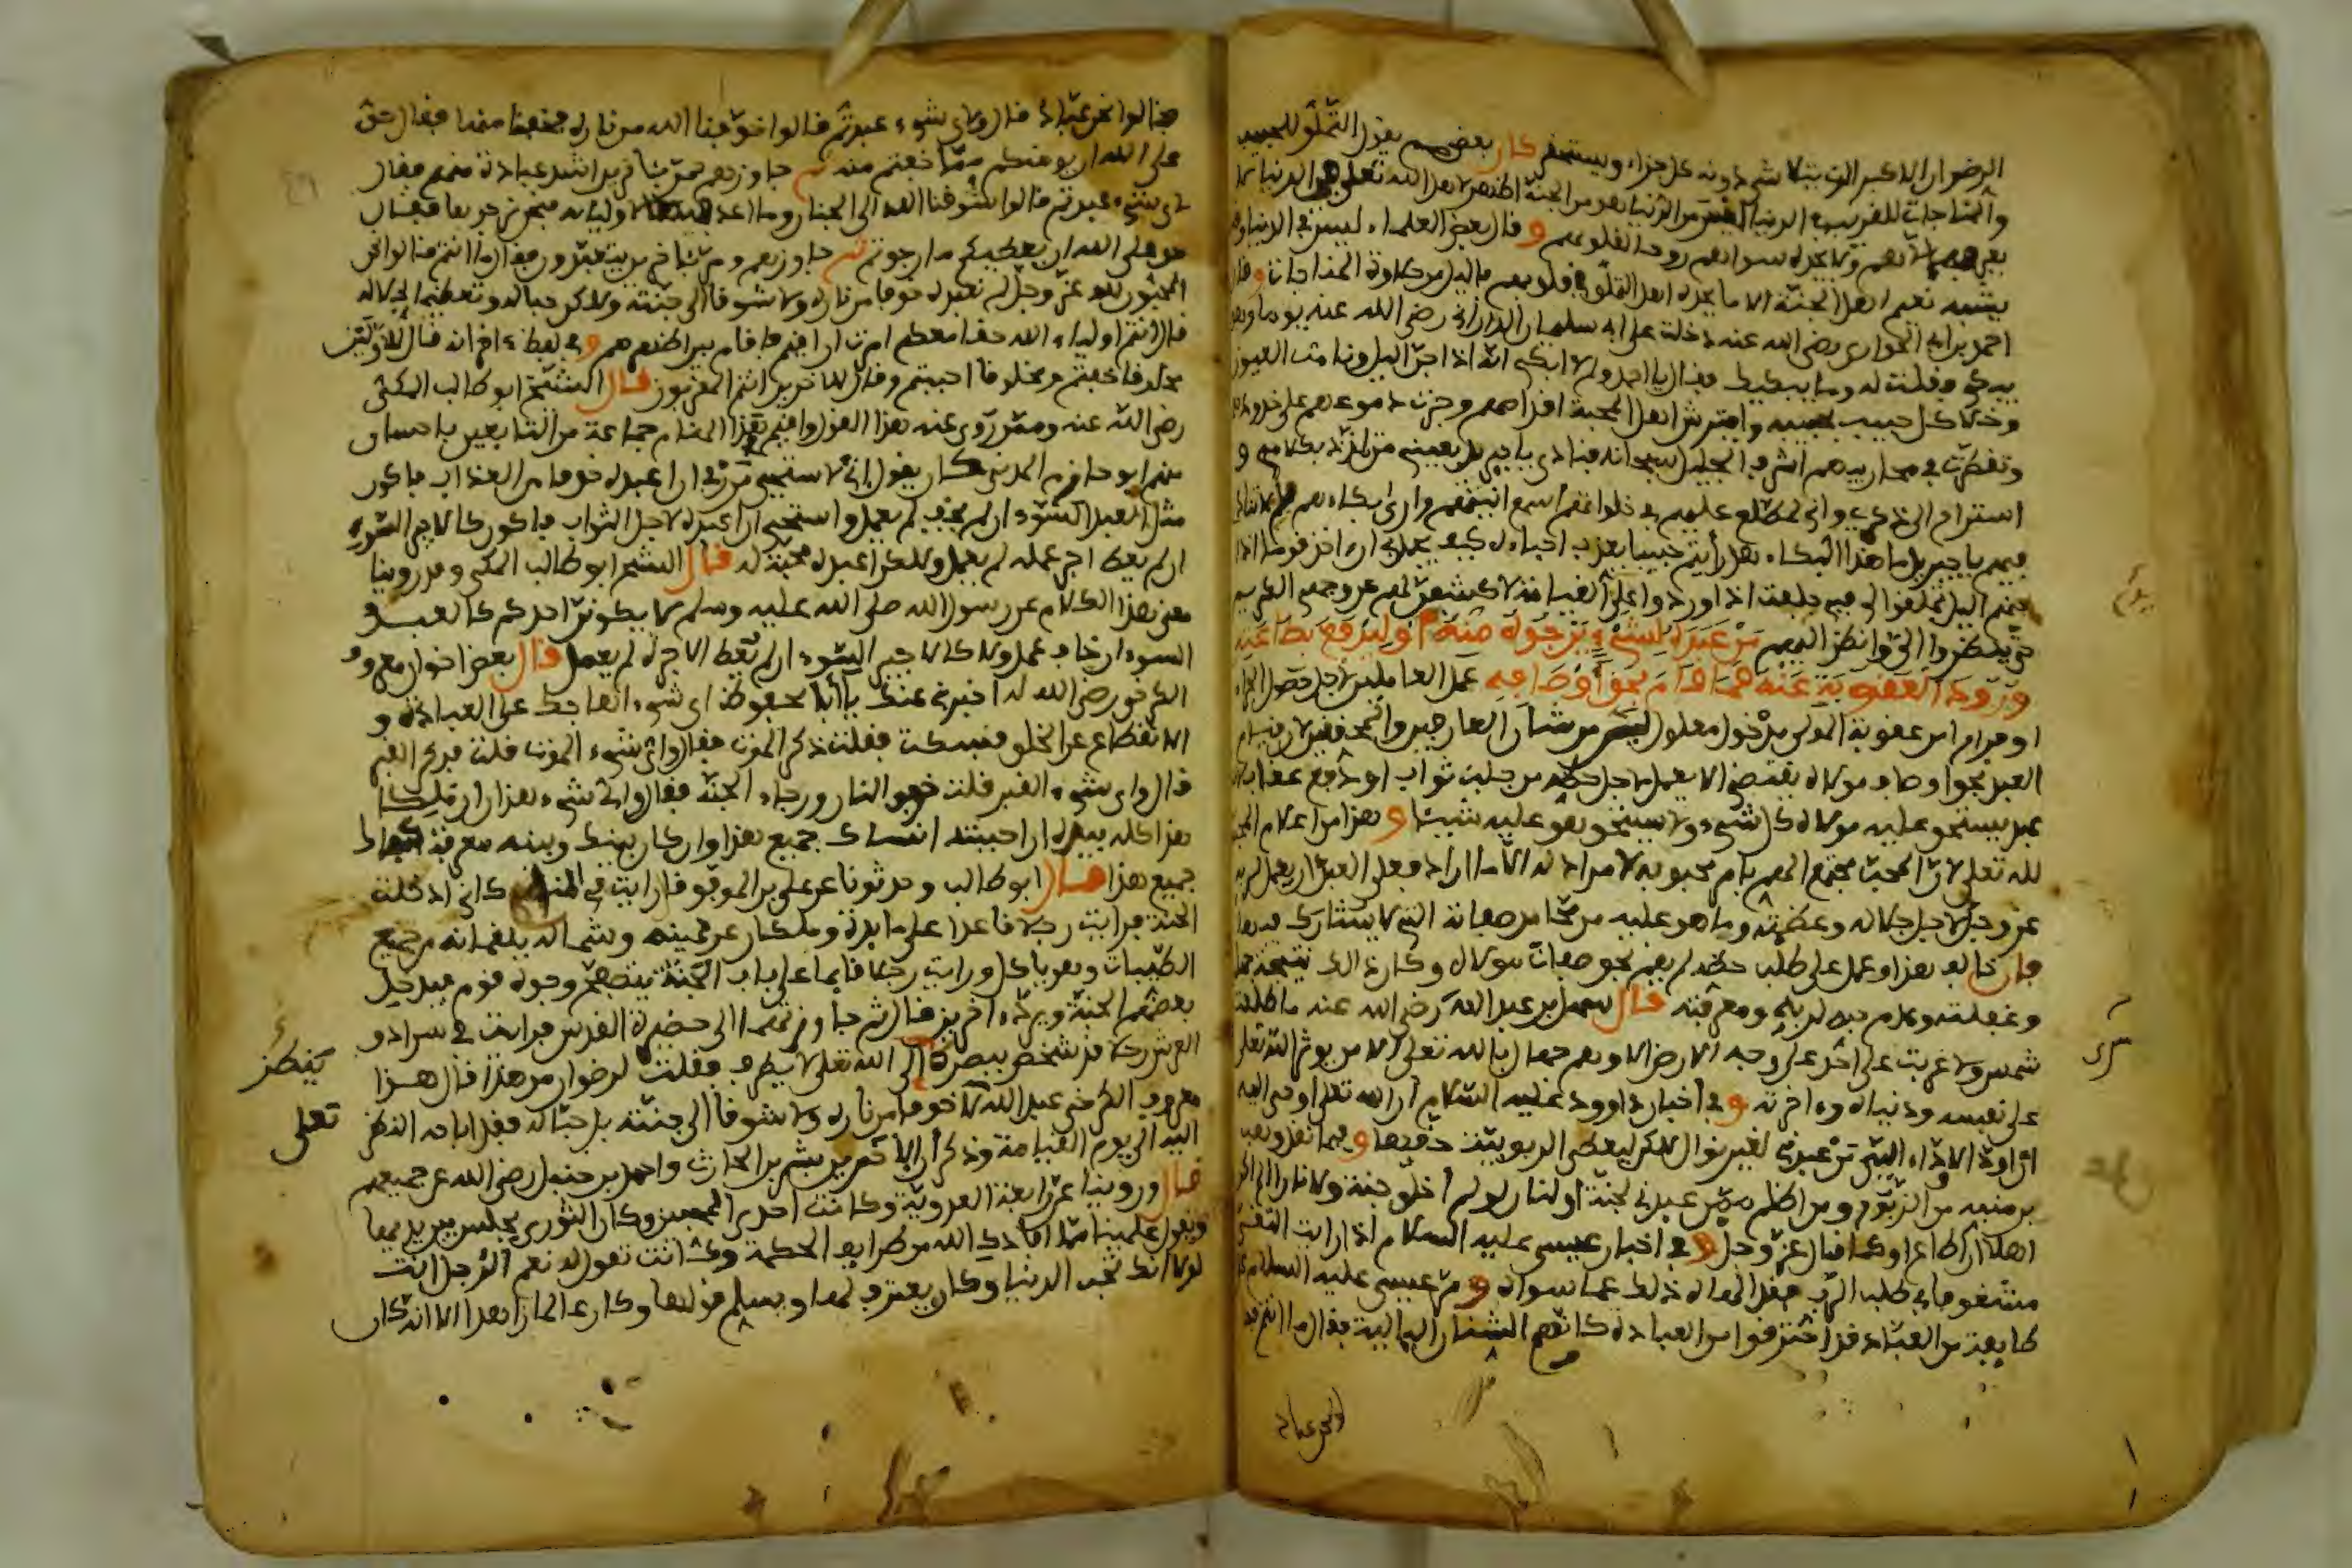 الرضوان الاكبر الذي شيء دونه كل جزاء ويستحقر كان بعضهم يقول التملق للحبيب
والمناجات للقريب في الدنيا ليس من الدنيا هو من الجنة اظهر لاهل الله تعلى في الدنيا لا
يعرفه الا هم ولا يجده سواهم روحا لقلوبهم و قال بعض العلماء ليس في الدنيا وقت
يشبه نعيم اهل الجنة الا ما يجده اهل التملق في قلوبهم باليل من حلاوة المناجات و قال
احمد بن ابي الحواري رضي الله عنه دخلت على ابي سليمان الداراني رضي الله عنه يوما وهو
يبكي فقلت له وما يبكيك فقال يا احمد ولم لا ابكي انه اذا جن اليل ونامت العيون
وخلا كل حبيب بحبيبه وافترش اهل المحبة اقدامهم وجرت دموعهم على خدودهم
وتقطرت في محاريبهم اشرف الجليل سبحانه فنادى يا جبريل بعيني من تلذذ بكلامي و
استراح الى ذكري واني لمطلع عليهم في خلواتهم اسمع انينهم وارى بكاءهم فلم لا تنادي
فيهم يا جبريل ما هذا البكاء هل رأيتم حبيبا يعذب احباءه كيف يجمل بي ان اخذ قوما اذا
جنهم اليل تملقوا الي فبي حلفت اذا وردوا علي القيامة لاكشفن لهم عن وجهي الكريم
حتى ينظروا الي وانظر اليهم من عبده لشيء يرجوه منه او ليدفع بطاعته
ورود العقوبة عنه فما قام بحق اوصافه عمل العاملين لاجل حصول الجزاء
او فرارا من عقوبة المولى مدخول معلول ليس من شان العارفين والمحققين لان قيام
العبد بحق اوصاف مولاه يقتضي الا يعمل لاجل حظه من جلب ثواب او دفع عقاب لانه
عبد يستحق عليه مولاه كل شيء ولا يستحق هو عليه شيئا و هذا من اعلام المحبة
لله تعلى لان المحب مجتمع الهم بامر محبوبه لا مراد له الا ما اراد فعلى العبد ان يعمل لربه
عز وجل لاجل جلاله وعظمته وما هو عليه من محامد صفاته التي لا يشارك فيها
فان خالف هذا وعمل على طلب حظه لم يقم بحق صفات مولاه وكان ذلك نتيجة جهله
وغفلته وعدم حبه لربه ومعرفته قال سهل بن عبد الله رضي الله عنه ما طلعت
شمس ولا غربت على احد على وجه الارض الا وهم جهال بالله تعلى الا من يوثر الله تعلى
على نفسه ودنياه واخرته و في اخبار داوود عليه السلام ان الله تعلى اوحى اليه
ان اود الاوداء الي من عبدني لغير نوال لكن ليعطي الربوبية حقها و فيما نقل وهب
بن منبه من الزبور ومن اظلم ممن عبدني لجنة او لنار لو لم اخلق جنة ولا نارا الم اكن
اهلا ان اطاع او كما قال عز وجل و في اخبار عيسى عليه السلام اذا رايت التقي
مشغوفا في طلب الرب فقد الهاه ذلك عما سواه و مر عيسى عليه السلام على
طايفة من العباد قد احترقوا من العبادة كانهم الشنان البالية فقال ما انتم فقا
لوا نحن عباد
فقالوا نحن عباد قال ولاي شيء عبدتم قالوا خوفنا الله من ناره فخفنا منها فقال حق
على الله ان يومنكم مما خفتم منه ثم جاوزهم فمر باخرين اشد عبادة منهم فقال
لاي شيء عبدتم قالوا شوقنا الله الى الجنان وما اعد فيها لاوليائه فنحن نرجوها فقال
حق على الله ان يعطيكم ما رجوتم ثم جاوزهم ومر باخرين يتعبدون فقال ما انتم قالوا نحن
المحبون لله عز وجل لم نعبده خوفا من ناره ولا شوقا الى جنته ولاكن حبا له وتعظيما لجلاله
قال انتم اولياء الله حقا معكم امرت ان اقيم فاقام بين اظهرهم و في لفظ اخر انه قال للاولين
مخلوقا خفتم ومخلوقا احببتم وقال للاخرين انتم المقربون قال الشيخ ابو طالب المكي
رضي الله عنه وممن روي عنه هذا القول واقيم هذا المقام جماعة من التابعين باحسان
منهم ابو حازم المدني كان يقول اني لاستحيي من ربي ان اعبده خوفا من العذاب فاكون
مثل العبد السوء ان لم يخف لم يعمل واستحيي ان اعبده لاجل الثواب فاكون كالاجير السوء
ان لم يعط اجر عمله لم يعمل ولكن اعبده محبة له قال الشيخ ابو طالب المكي وقد روينا
معنى هذا الكلام عن رسول الله صلى الله عليه وسلم لا يكونن احدكم كالعبد
السوء ان خاف عمل ولا كالاجير السوء ان لم يعط الاجرة لم يعمل قال بعض اخوان معروف
الكرخي رضي الله له اخبرني عنك يا أبا محفوظ اي شيء هاجك على العبادة و
الانقطاع عن الخلق فسكت فقلت ذكر الموت فقال واي شيء الموت قلت فذكر القبر
قال واي شيء القبر فقلت خوف النار ورجاء الجنة فقال واي شيء هذا ان ملكا
هذا كله بيده ان احببته انساك جميع هذا وان كان بينك وبينه معرفة كفاك
جميع هذا قال ابو طالب وحدثونا عن علي بن الموفق قال رايت في المنام كاني ادخلت
الجنة فرايت رجلا قاعدا على مايدة وملكان عن يمينه وشماله يلقمانه من جميع
الطيبات وهو ياكل ورايت رجلا قايما على باب الجنة يتصفح وجوه قوم فيدخل
بعضهم الجنة ويرد اخرين قال ثم جاوزتهما الى حضرة القدس فرايت في سرادق
العرش رجلا قد شخص ببصره الى الله تعلى لا يطرف فقلت لرضوان من هذا قال هذا
معروف الكرخي عبد الله لا خوفا من ناره ولا شوقا الى جنته بل حبا له فقد اباحه النظر
اليه الى يوم القيامة وذكر ان الاخرين بشر بن الحارث واحمد بن حنبل رضي الله عن جميعهم
قال وروينا عن رابعة العدوية وكانت احدى المحبين وكان الثوري يجلس بين يديها
ويقول علمينا مما افادك الله من طرايف الحكمة وكانت تقول له نعم الرجل انت
لولا انك تحب الدنيا وكان يعترف لها ويسلم قولها وكان عالما زاهدا الا انه كان
ينظر
تعلى